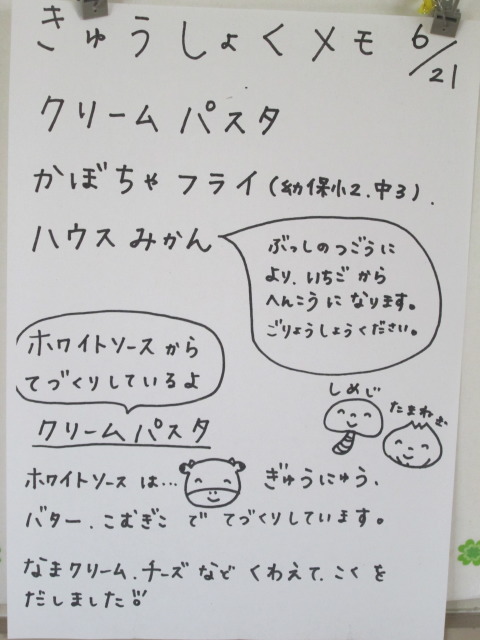 きゅうしょくメモ 6/21
クリームパスタ
かぼちゃフライ(幼保小2.中3).
ハウスみかん
ぶっしのつごうに
より、いちごから
へんこうになります。
ごりょうしょうください。
ホワイトソースから
てづくりしているよ
しめじ
たまねぎ
クリームパスタ
ホワイトソースは… ぎゅうにゅう、
バター、こむぎこでてづくりしています。
なまクリーム、チーズなどくわえて、こくを
だしました!!